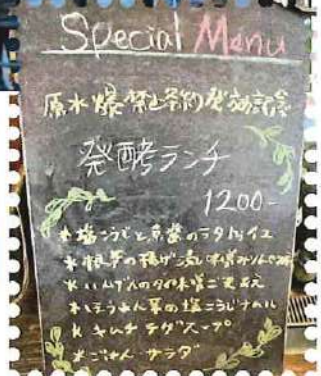 Special Menu
原水爆禁止条約発効記念
発酵ランチ
1200-
*塩こうじと京菜のラタトゥイユ
*根菜の揚げ浸し
*いんげんのタイ味噌ごまあえ
*ほうれん草の塩こうじナムル
*キムチチゲスープ
*ごはん サラダ